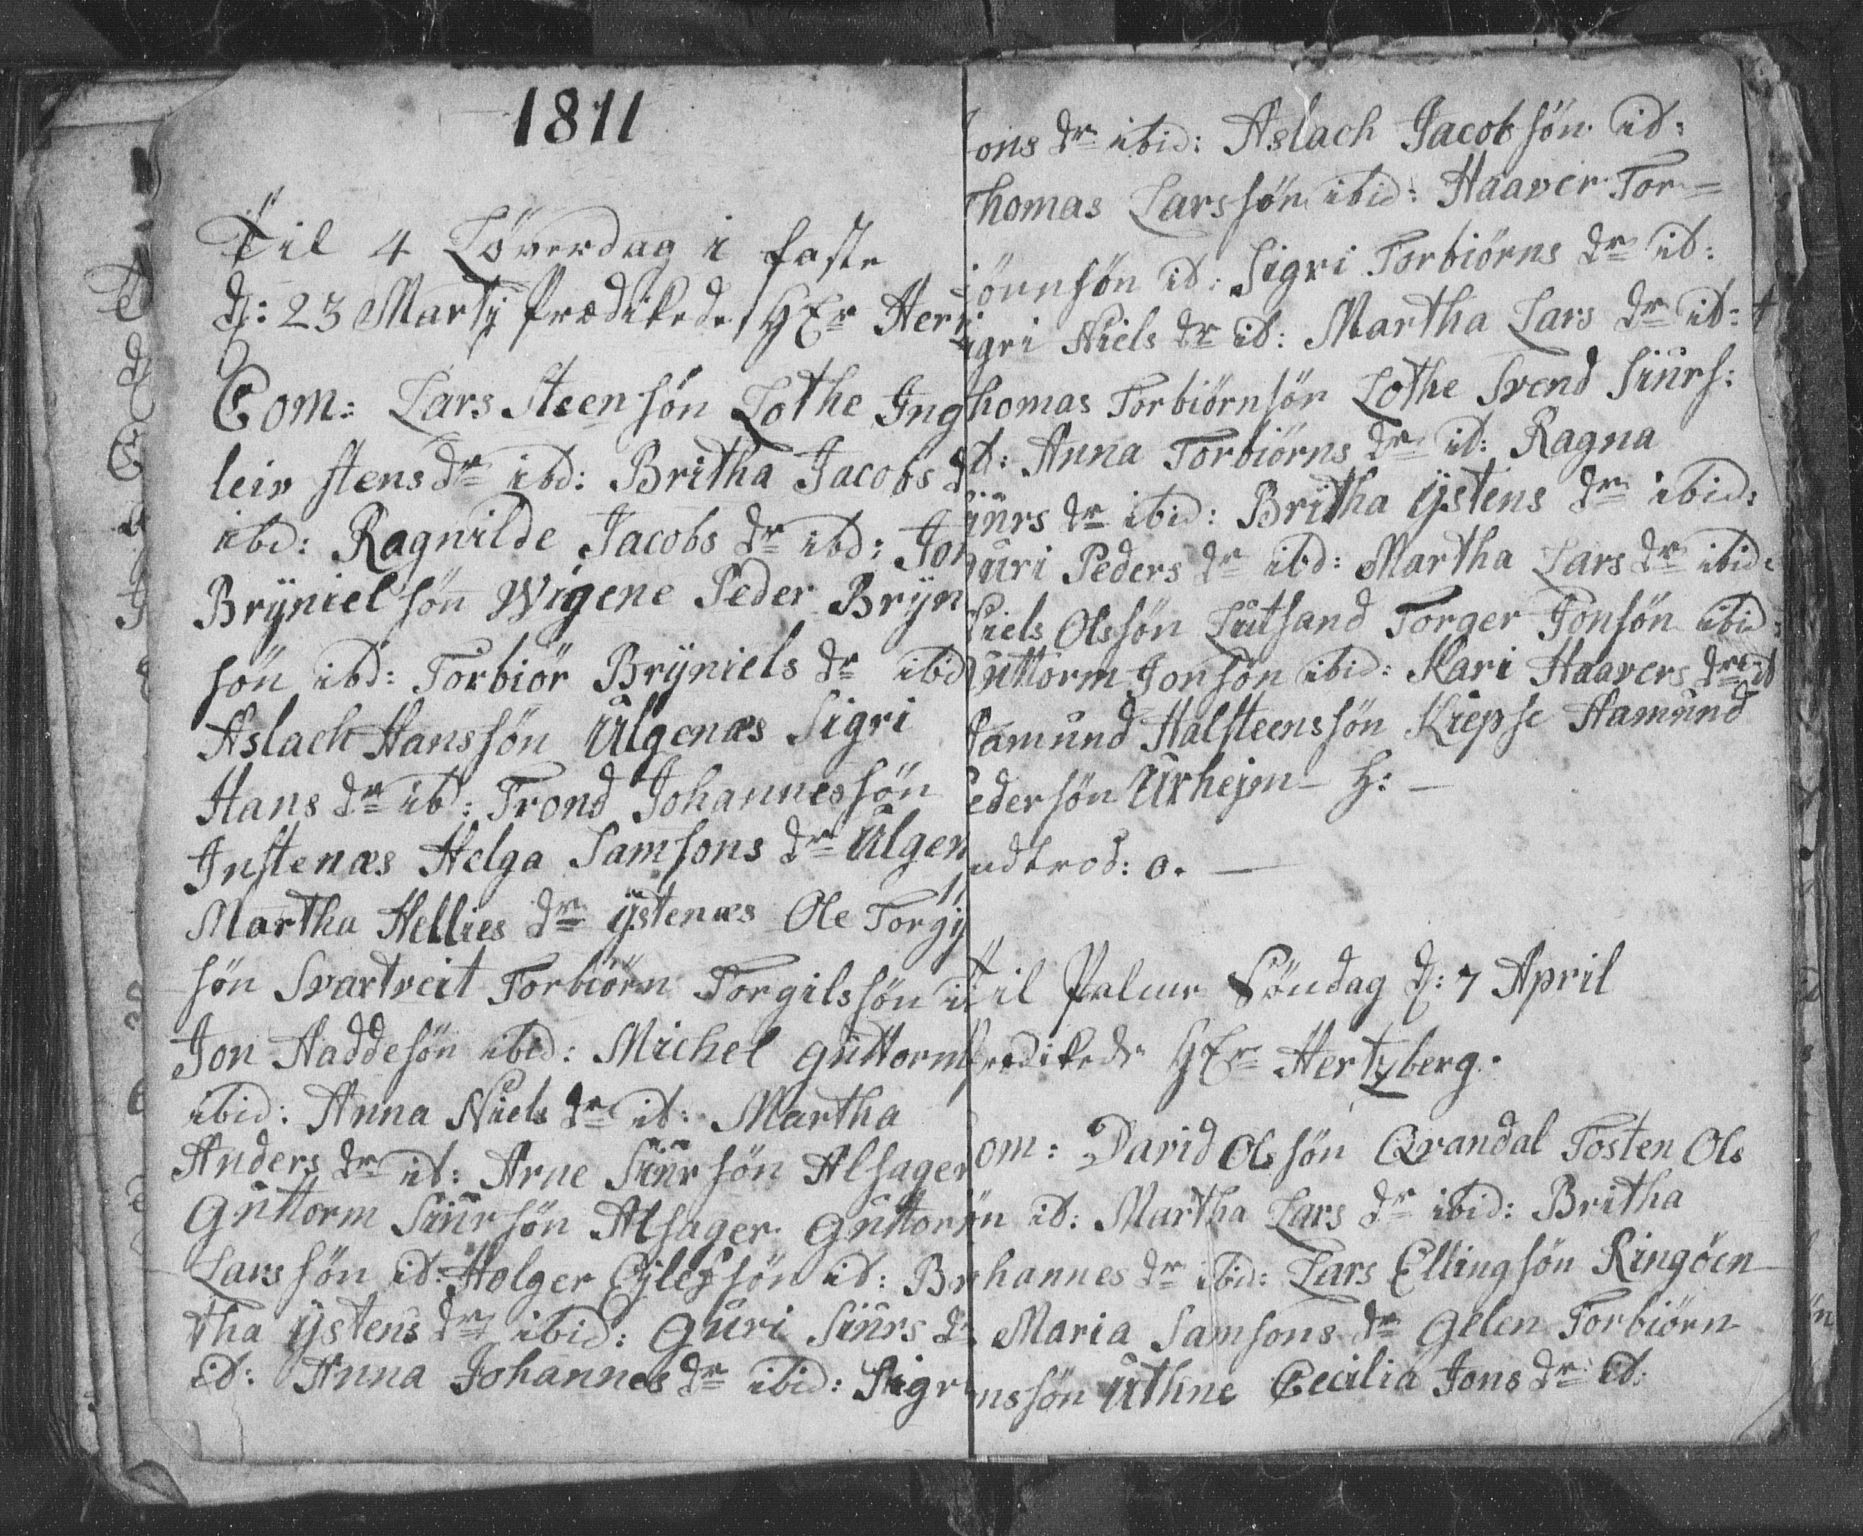 1811
Til 4 Löverdag i faste
d: 23 Martj Prædikede HEr Her
Com: Lars Steensön Lothe Ing
leiv stens dr ibd: Britha Jacobs d
ibd: Ragnilde Jacobs dr ibd: Jon
Brÿnielsön Wigene Peder Brÿn
sön ibd: Torbiör Brÿniels dr ibd
Aslach Hanssön Ulgenæs Sigri
Hans dr ib: Trond Johannessön
Instenæs Helga Samsons dr Ulgen
Martha Hellies dr ÿstenæs Ole Torgÿ
sön Svartveit Torbiörn Torgilssön i
Jon Haddesön ibid: Michel Guttorms
ibid: Anna Niels dr it: Martha
Anders dr it: Arne Siursön Alsager
Guttorm Siursön Alsager Guttor
Larssön it: Holger Eÿlefsön it: Br
tha ÿstens dr ibid: Guri Siurs dr
it: Anna Johannes dr ibid: Sigr
ons dr ibid: Aslach Jacobsön it:
homas Larssön ibid: Haaver Tor=
iörnsön it: Sigri Torbiörns dr it:
igri Niels dr it: Martha Lars dr it:
homas Torbiörnsön Lothe Svend Siurs:
t: Anna Torbiörns dr it: Ragna
iurs dr ibid: Britha ÿstens dr ibid:
uri Peders dr ibd: Martha Lars dr ibid:
Niels Olssön Lutsand Torger Jonsön ibid:
Guttorm Jonsön ibid: Kari Haavers dr it
Hamund Halsteenssön Kiepse Hamund
edersön Urhejm – H: –
udtrod: 0. —
Til Palme Söndag d: 7 April
rædikede HEr Hertzberg.
om: David Olssön Qvandal Tosten Ols
ön it: Martha Lars dr ibid: Britha
hannes dr ibid: Lars Ellingsön Ringöen
Maria Samsons dr Gelen Torbiörn
nssön Uthne Cecilia Jons dr it: